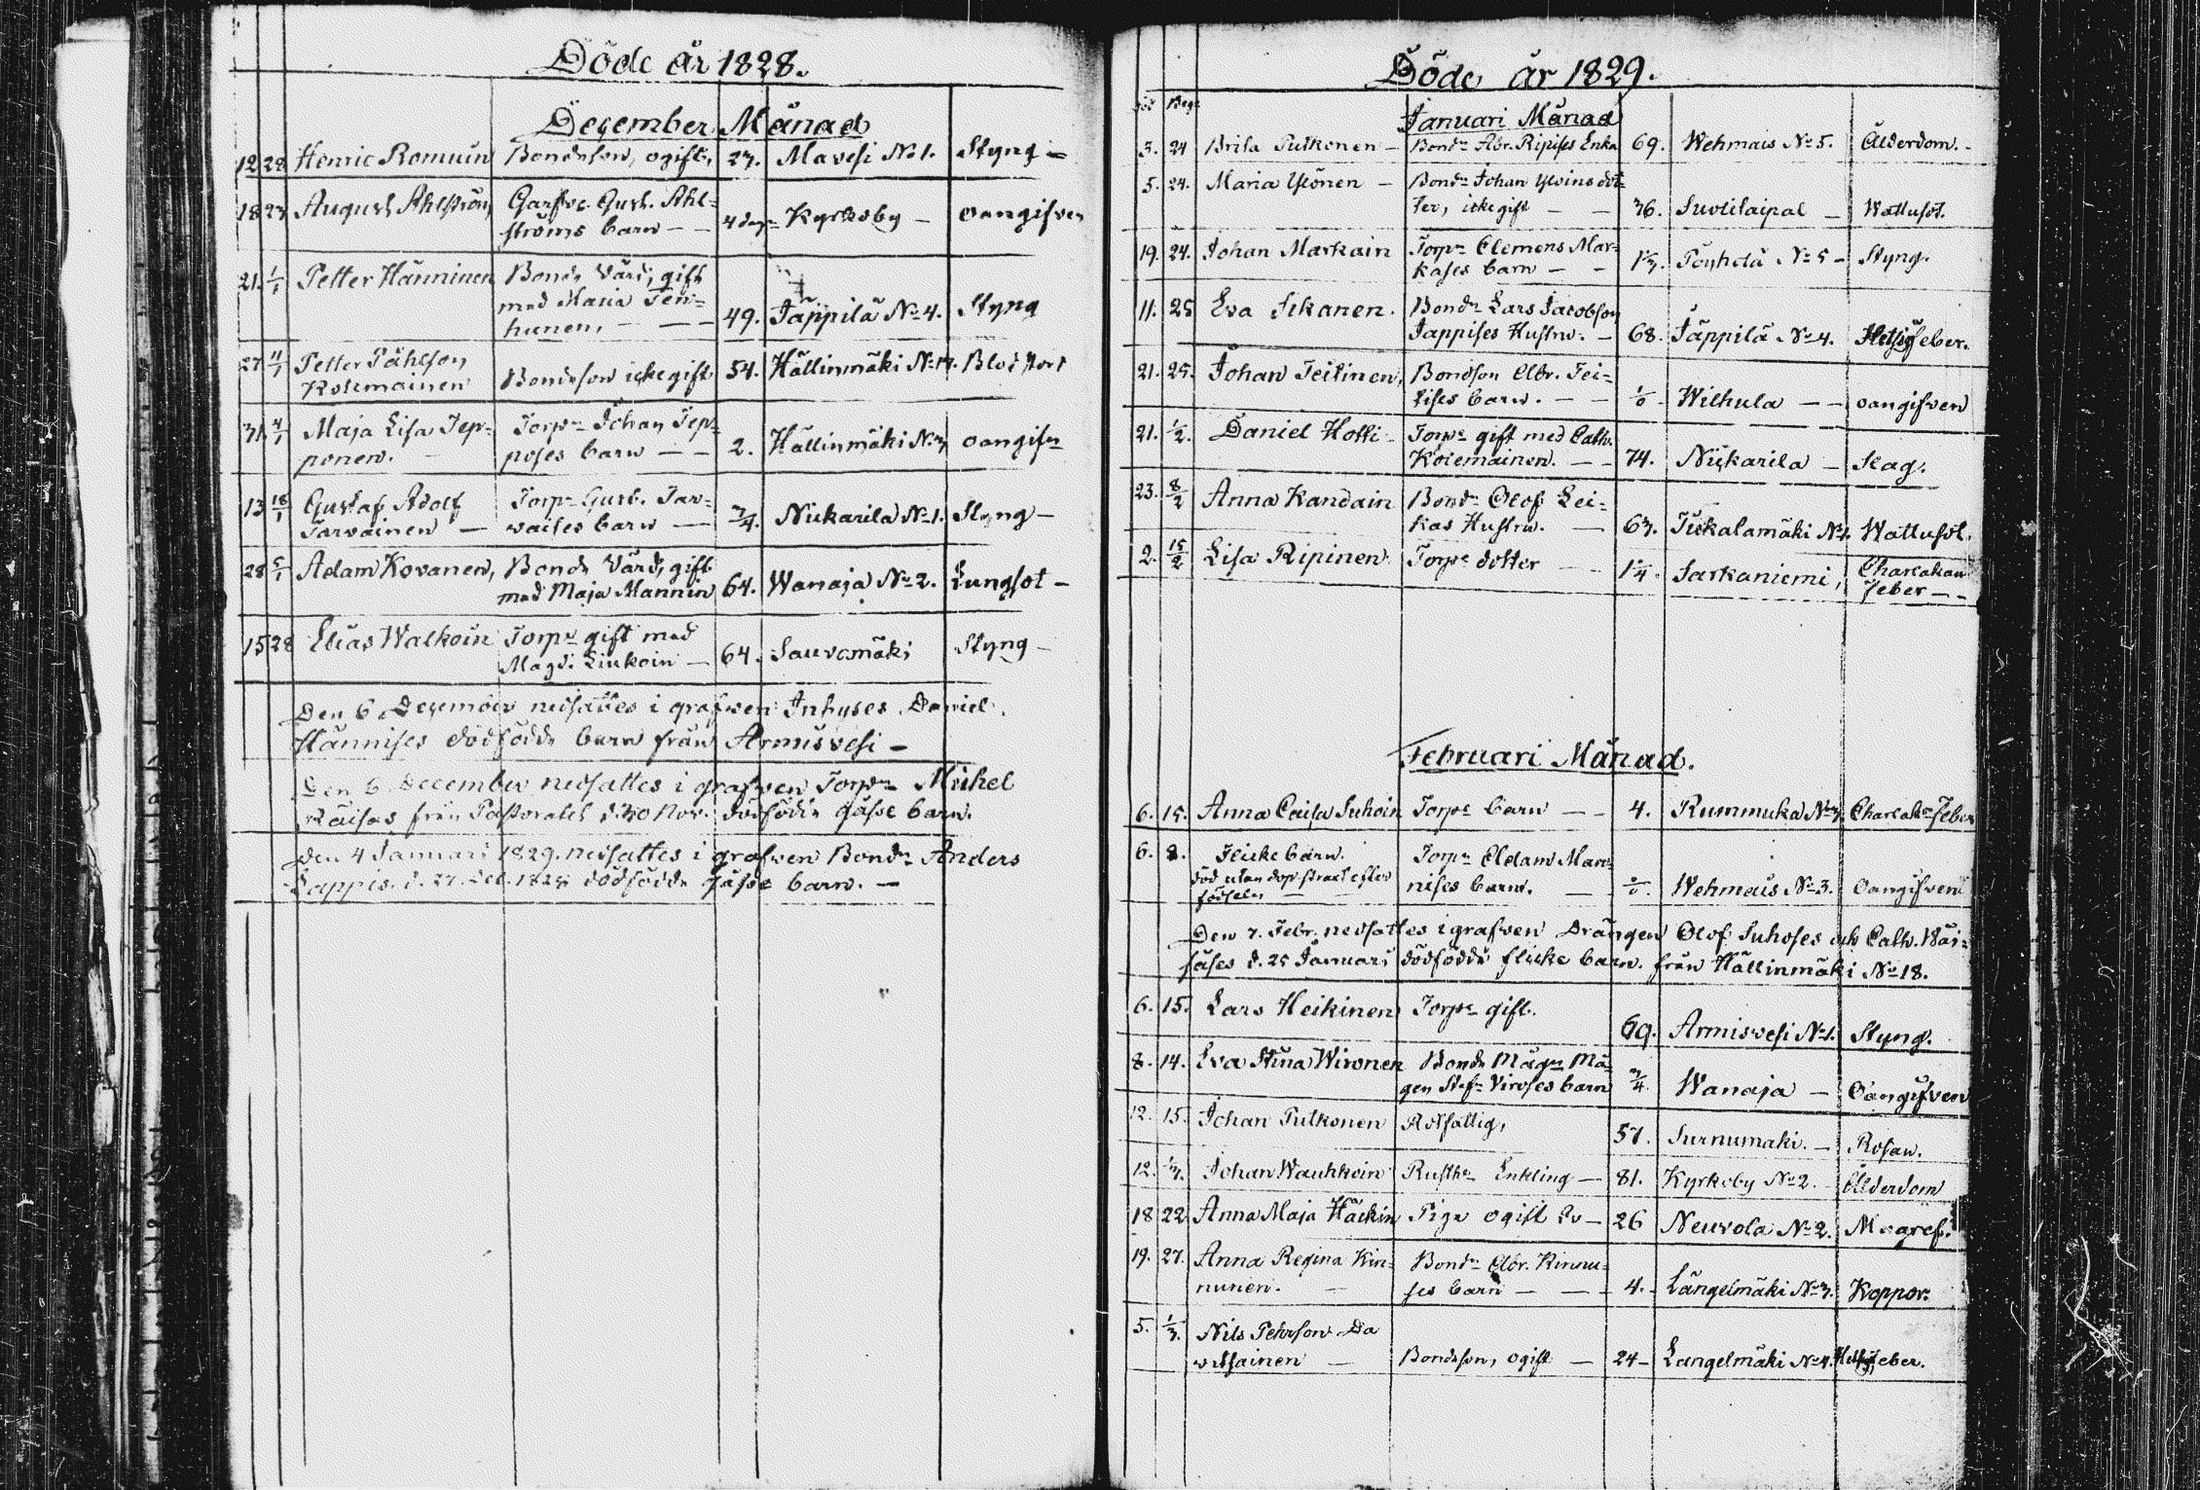 Döde år 1828.
December Månad
12 28 Henric Romuin Bondeson, ogift, 27. Mavesi No 1. Styng –
18 27 August Ahlström Garfve. Gust. Ahl=
ströms barn – – 4 dag. Kyrkoby – oangifven
21. 1/1 Petter Hänninen Bonde Värd, gift
med Maria Ten=
hunen, – – 49. Jäppilä No 4. Styng
27 4/1 Petter Påhlson
Kolemainen Bondeson icke gift 54. Hällinmäki No 17. Blodstört
31. 4/1 Maja Lisa Tep= Torpr Johan Tep=
ponen. poses barn – – 2. Hällinmäki No 7 oangifn
13 18/1 Gustaf Adolf Torpr Gust. Tar=
Tarvainen – vaises barn – 3/4. Niskarila No 1. Styng –
28 5/1 Adam Kovanen, Bonde Värd, gift
med Maja Mannin 64. Wanaja No 2. Lungsot –
15 28 Elias Walkoin Torpr gift med
Magd. Liukoin – 64. Sauvamäki Styng –
Den 6 December nedsattes i grafven Inhyses Daniel
Hännises dödfödde barn från Armisvesi –
Den 6 December nedsattes i grafven Torpn Michel
Räises från Pastoratet d. 30 Nov. dödfödde gåsse barn.
Den 4 Januari 1829. nedsattes i grafven Bondn Anders
Jappis. d. 27. Dec. 1828 dödfödde gåsse barn. –
Döde år 1829.
Januari Månad
3. 24 Brita Pulkonen – Bondn Abr. Ripises Enka 69. Wehmais No 5. Ålderdom. –
5. 24. Maria Ylönen – Bondn Johan Yloins dot=
ter, icke gift – – 36. Suotilaipal – Wattusot.
19. 24. Johan Markain Torpn Clemens Mar=
kases barn – – 1/3. Pöyhölä No 5 – Styng.
11. 25 Eva Ickanen. Bondn Lars Jacobson
Jappises Hustru. – 68. Jäppilä No 4. Hetsig feber.
21. 25. Johan Teitinen, Bondson Abr. Tei=
tises barn. – – 1/0. Wilhula – – oangifven
21. 1/2. Daniel Hotti – Torpr gift med Cath.
Kolemainen. – – 74. Niskarila – Slag.
23. 8/2 Anna Kandain Bondn Olof Lei=
kas Hustru. – 63. Tiikalamäki No 1. Wattusot.
2. 15/2 Lisa Ripinen Torpr dotter – 1/4. Sarkaniemi, Charlakan
feber – –
Februari Månad.
6. 15. Anna Caisa Suhoin Torpr barn – – 4. Rummuka No 3. Charlakn feber
6. 8. Flicke barn. Torpn Adam Man=
död utan dop strax efter nises barn. – 0/0. Wehmais No 3. oangifven
födseln –
Den 7. Febr. nedsattes i grafven Drängen Olof Suhoses och Cath. Väi=
säses d. 25 Januari dödfödde flicke barn. från Hällinmäki No 18.
6. 15. Lars Heikinen Torpr gift.
69. Armisvesi No 1. Styng.
8. 14. Eva Stina Wironen Bonde Mågn Må=
gen Stefn Viroses barn 3/4. Wanaja – Oangifven
12. 15. Johan Pulkonen Rotfattig,
57. Surnumäki. – Rosen.
12. 1/3. Johan Wauhkoin Rusthr Enkling – 81. Kyrkoby No 2. Ålderdom
18 22 Anna Maja Häckin Piga ogift – 26 Neuvola No 2. Magref.
19. 27. Anna Regina Kin= Bondn Abr. Kinnu=
nunen. – ses barn – – – 4. – Längelmäki No 3. Koppor.
5. 1/3. Nils Pehrson Da
vitsainen – Bondeson, ogift – 24 – Längelmäki No 4. Hetsig feber.